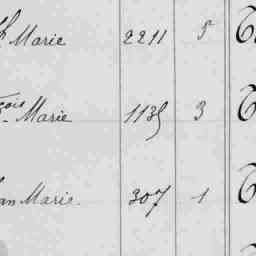 Marie 2211 5
çois Marie 1135 3
an Marie. 307 1